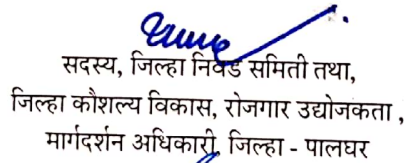 सदस्य, जिल्हा निवड समिती तथा,
जिल्हा कौशल्य विकास, रोजगार उद्योजकता ,
मार्गदर्शन अधिकारी, जिल्हा - पालघर